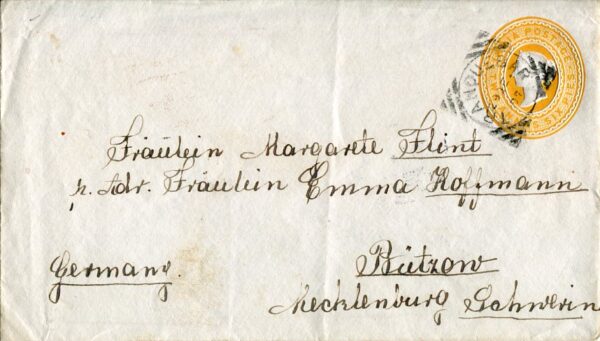 INDIA POSTAGE
SIX PIES
Fräulein Margarete Flint
p. Adr. Fräulein Emma Hoffmann
Germany.
Bützow
Mecklenburg Schwerin